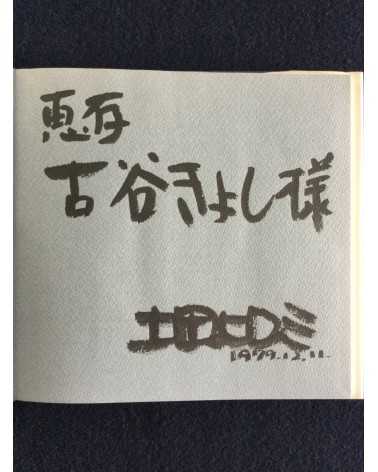 恵存
古谷きよし様
土田ヒロミ
1979.12.11.